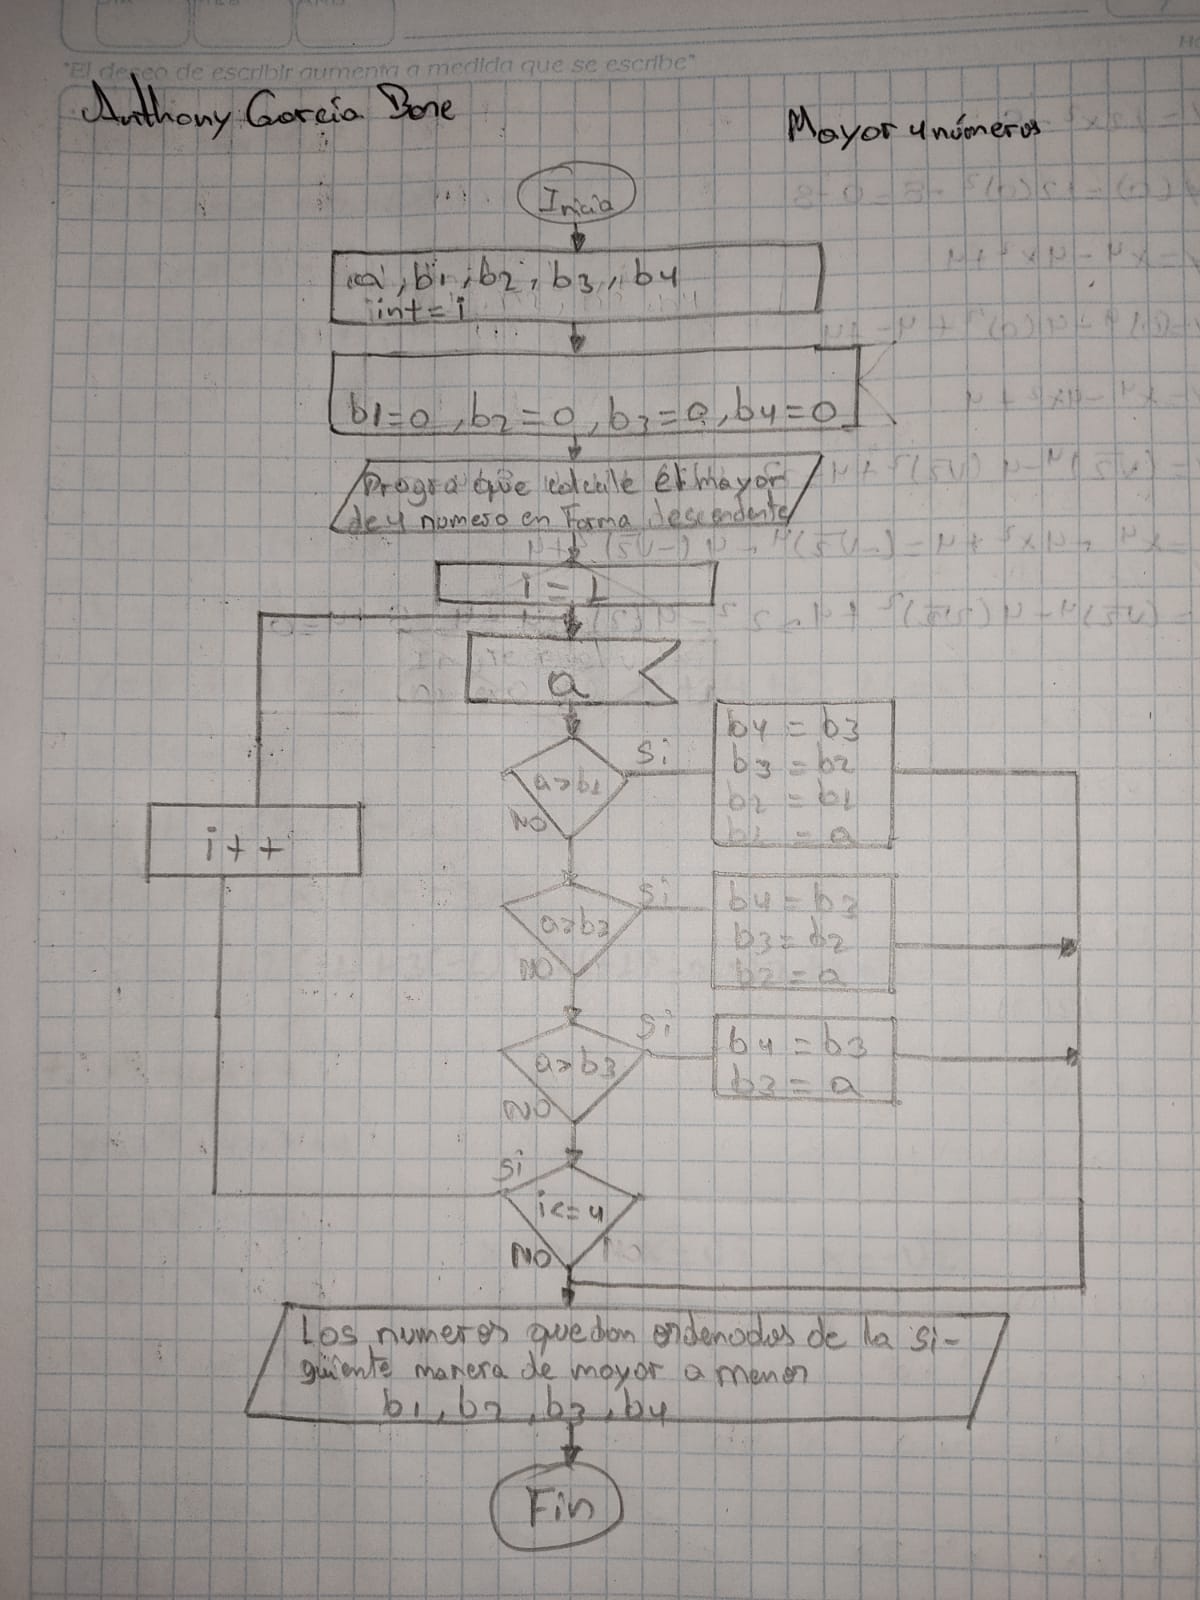 "El deseo de escribir aumenta a medida que se escribe"
Anthony García Bone
Mayor 4 números
Inicia
a, b1, b2, b3, b4
int = i
b1=0, b2=0, b3=0, b4=0
Progra que calcule el mayor
de 4 numero en Forma descendente
i = 1
a
a>b1
Si
NO
b4 = b3
b3 = b2
b2 = b1
b1 = a
i++
a>b2
Si
NO
b4 = b3
b3 = b2
b2 = a
a>b3
Si
NO
b4 = b3
b3 = a
Si
i<=4
NO
Los numeros quedan ordenados de la si-
guiente manera de mayor a menor
b1, b2, b3, b4
Fin